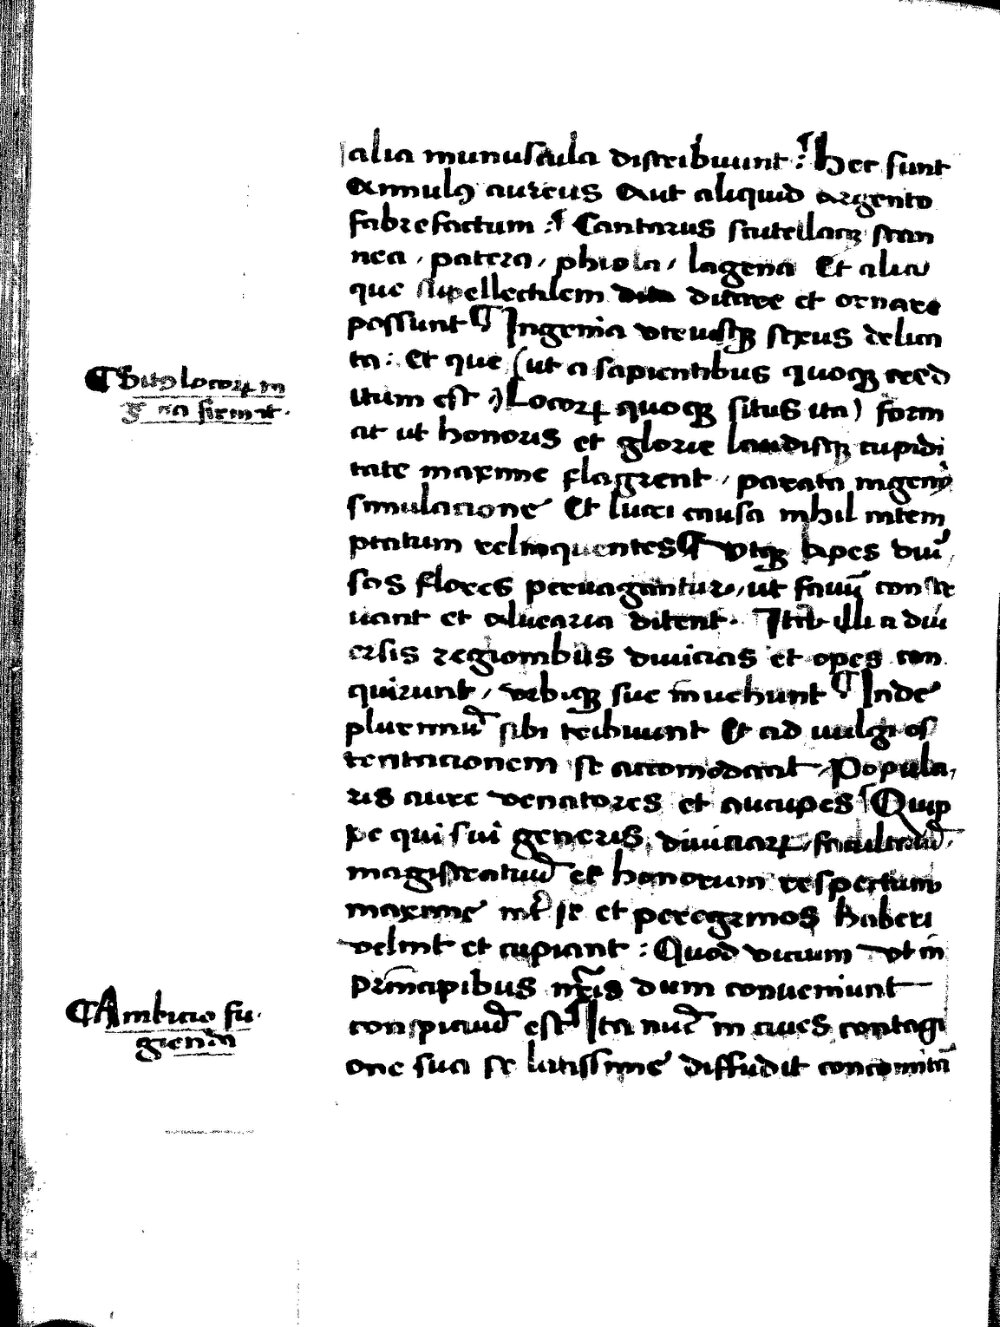 alia munuscula distribuunt : ¶ Hec sunt
Annulꝰ aureus Aut aliquid argento
fabrefactum : ¶ Cantarus scutellaqꝫ stan
nea / patera / phiola / lagena Et alia
que supellectilem ditare et ornare
possunt ¶ Ingenia vtriusqꝫ sexus delica
ta : Et que (ut a sapientibus quoqꝫ cred
itum est ) Locoꝝ quoqꝫ situs ita) form
at ut honoris et glorie laudisqꝫ cupidi
tate maxime flagrent / parata ingenij
simulacione Et lucri causa nihil intem
ptatum relinquentes ¶ Vtqꝫ apes diui
sas flores peruagantur / ut fauū constr
uant et aluearia ditent . Itā illi a diu
ersis regionibus diuicias et opes con
quirunt / vrbiqꝫ sue inuehunt ¶ Inde
plurimū sibi tribuunt Et ad uulgi os
tentacionem se accomodant / Popula,
ris aure venatores et aucupes ¶ Quip
pe qui sui generis, diuiciaꝝ, facultatū,
magistratuū et honorum respectum
maxime int̄ se et peregrinos haberi
velint et cupiant : Quod vicium vt in
principibus nr̄is dum conueniunt
conspicuū est ¶ Ita nūc in ciues contagi
one sua se latissime diffudit concomitā
¶ Sitꝰ locoꝝ in
gēia format .
¶ Ambicio fu.
gienda